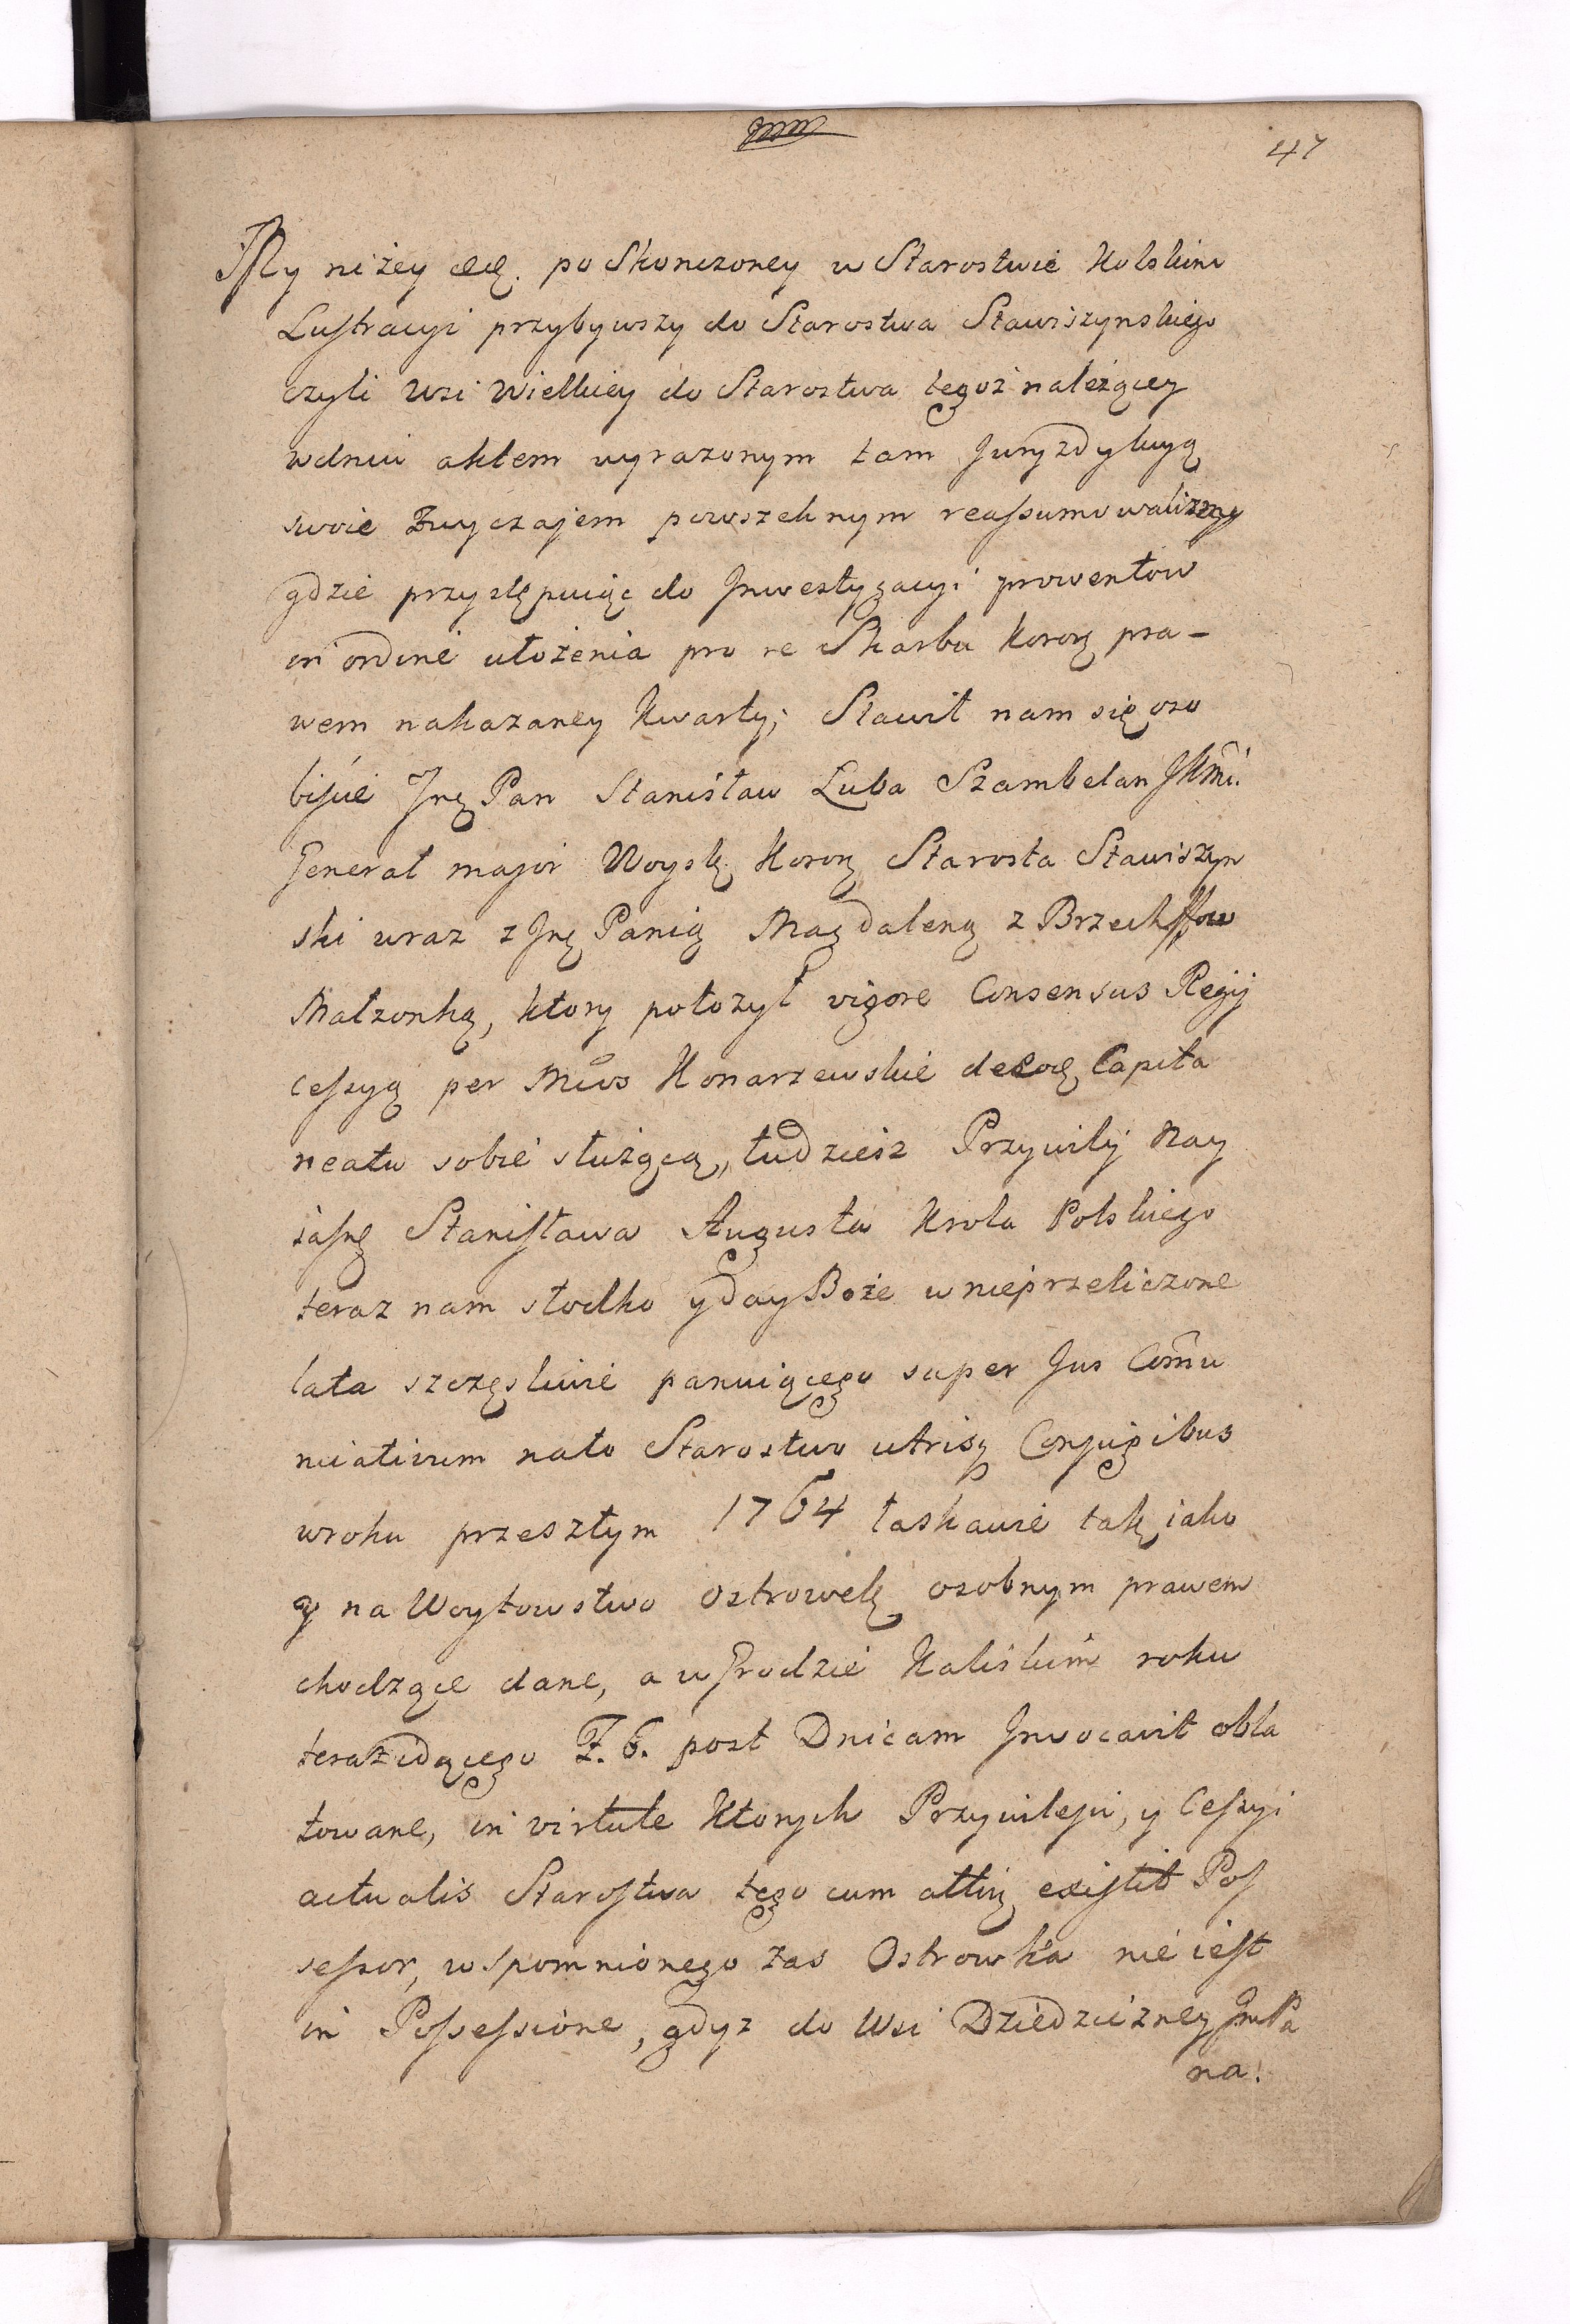 47
My niżey etc. po Skonczoney w Starostwie Kolskim
Lustracyi przybywszy do Starostwa Stawiszynskiego
czyli Wsi Wielkiey do Starostwa tegoż należącey
w dniu aktem wyrazonym tam Juryzdykcyą
swoie Zwyczajem powszechnym reassumowalizmy
gdzie przystępuiąc do Inwestygacyi prowentow
in ordine ułożenia pro re Skarbu Koronę pra-
wem nakazaney Kwarty; Stawił nam się oso
biście Jmę Pan Stanisław Luba Szambelan JKMci.
Generał major Woyskę Koronę Starosta Stawiszyn
ski wraz z Jmę Panią Magdaleną z Brzechffow
Małzonką, ktory położył vigore Consensus Regij
cessyą per Mcos Konarzewskie de eoę Capita
neatu sobie służącą, tudziesz Przywilij Nay
iasnę Stanisława Augusta Krola Polskiego
teraz nam słodko y day Boże w nieprzeliczone
lata szczęsliwie panuiącego super Jus Comu
nicativum na to Starostwo utrisqę Conjugibus
w roku przeszłym 1764 łaskawie tak iako
y na Woytowstwo Ostrowek osobnym prawem
chodzące dane, a w Grodzie Kaliskim roku
teraz idącego F. 6. post Dnicam Invocavit obla
towane, in virtute Ktorych Przywileju, y Cessyi
actualis Starostwa tego cum attinę existit Pos
sessor, wspomnionego zas Ostrowka nie iest
in Possessione, gdyz do Wsi Dziedziczney JmPa
na.